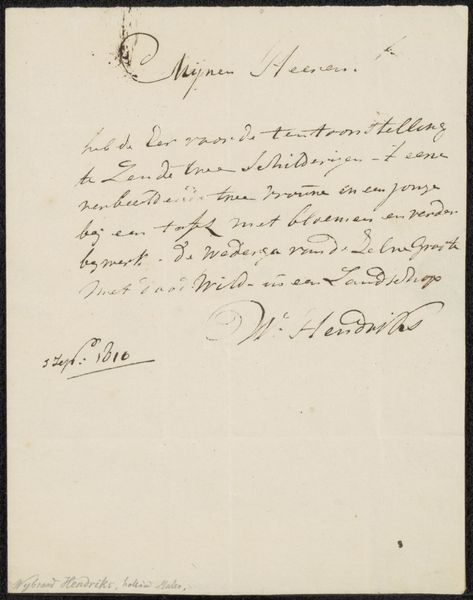 Mijnen Heeren.
heb de Eer voor de tentoonstelling
te Zende twee Schilderijen - 't eene
verbeeldende twee vrouwe en een jonge
bij een tafel met bloemen en verder
bijwerk - de wederga van de Zelve Grootte
met dood Wild - in een Landschap
W. Hendriks
3 Sept. 1810
Wybrand Hendriks, Maler.